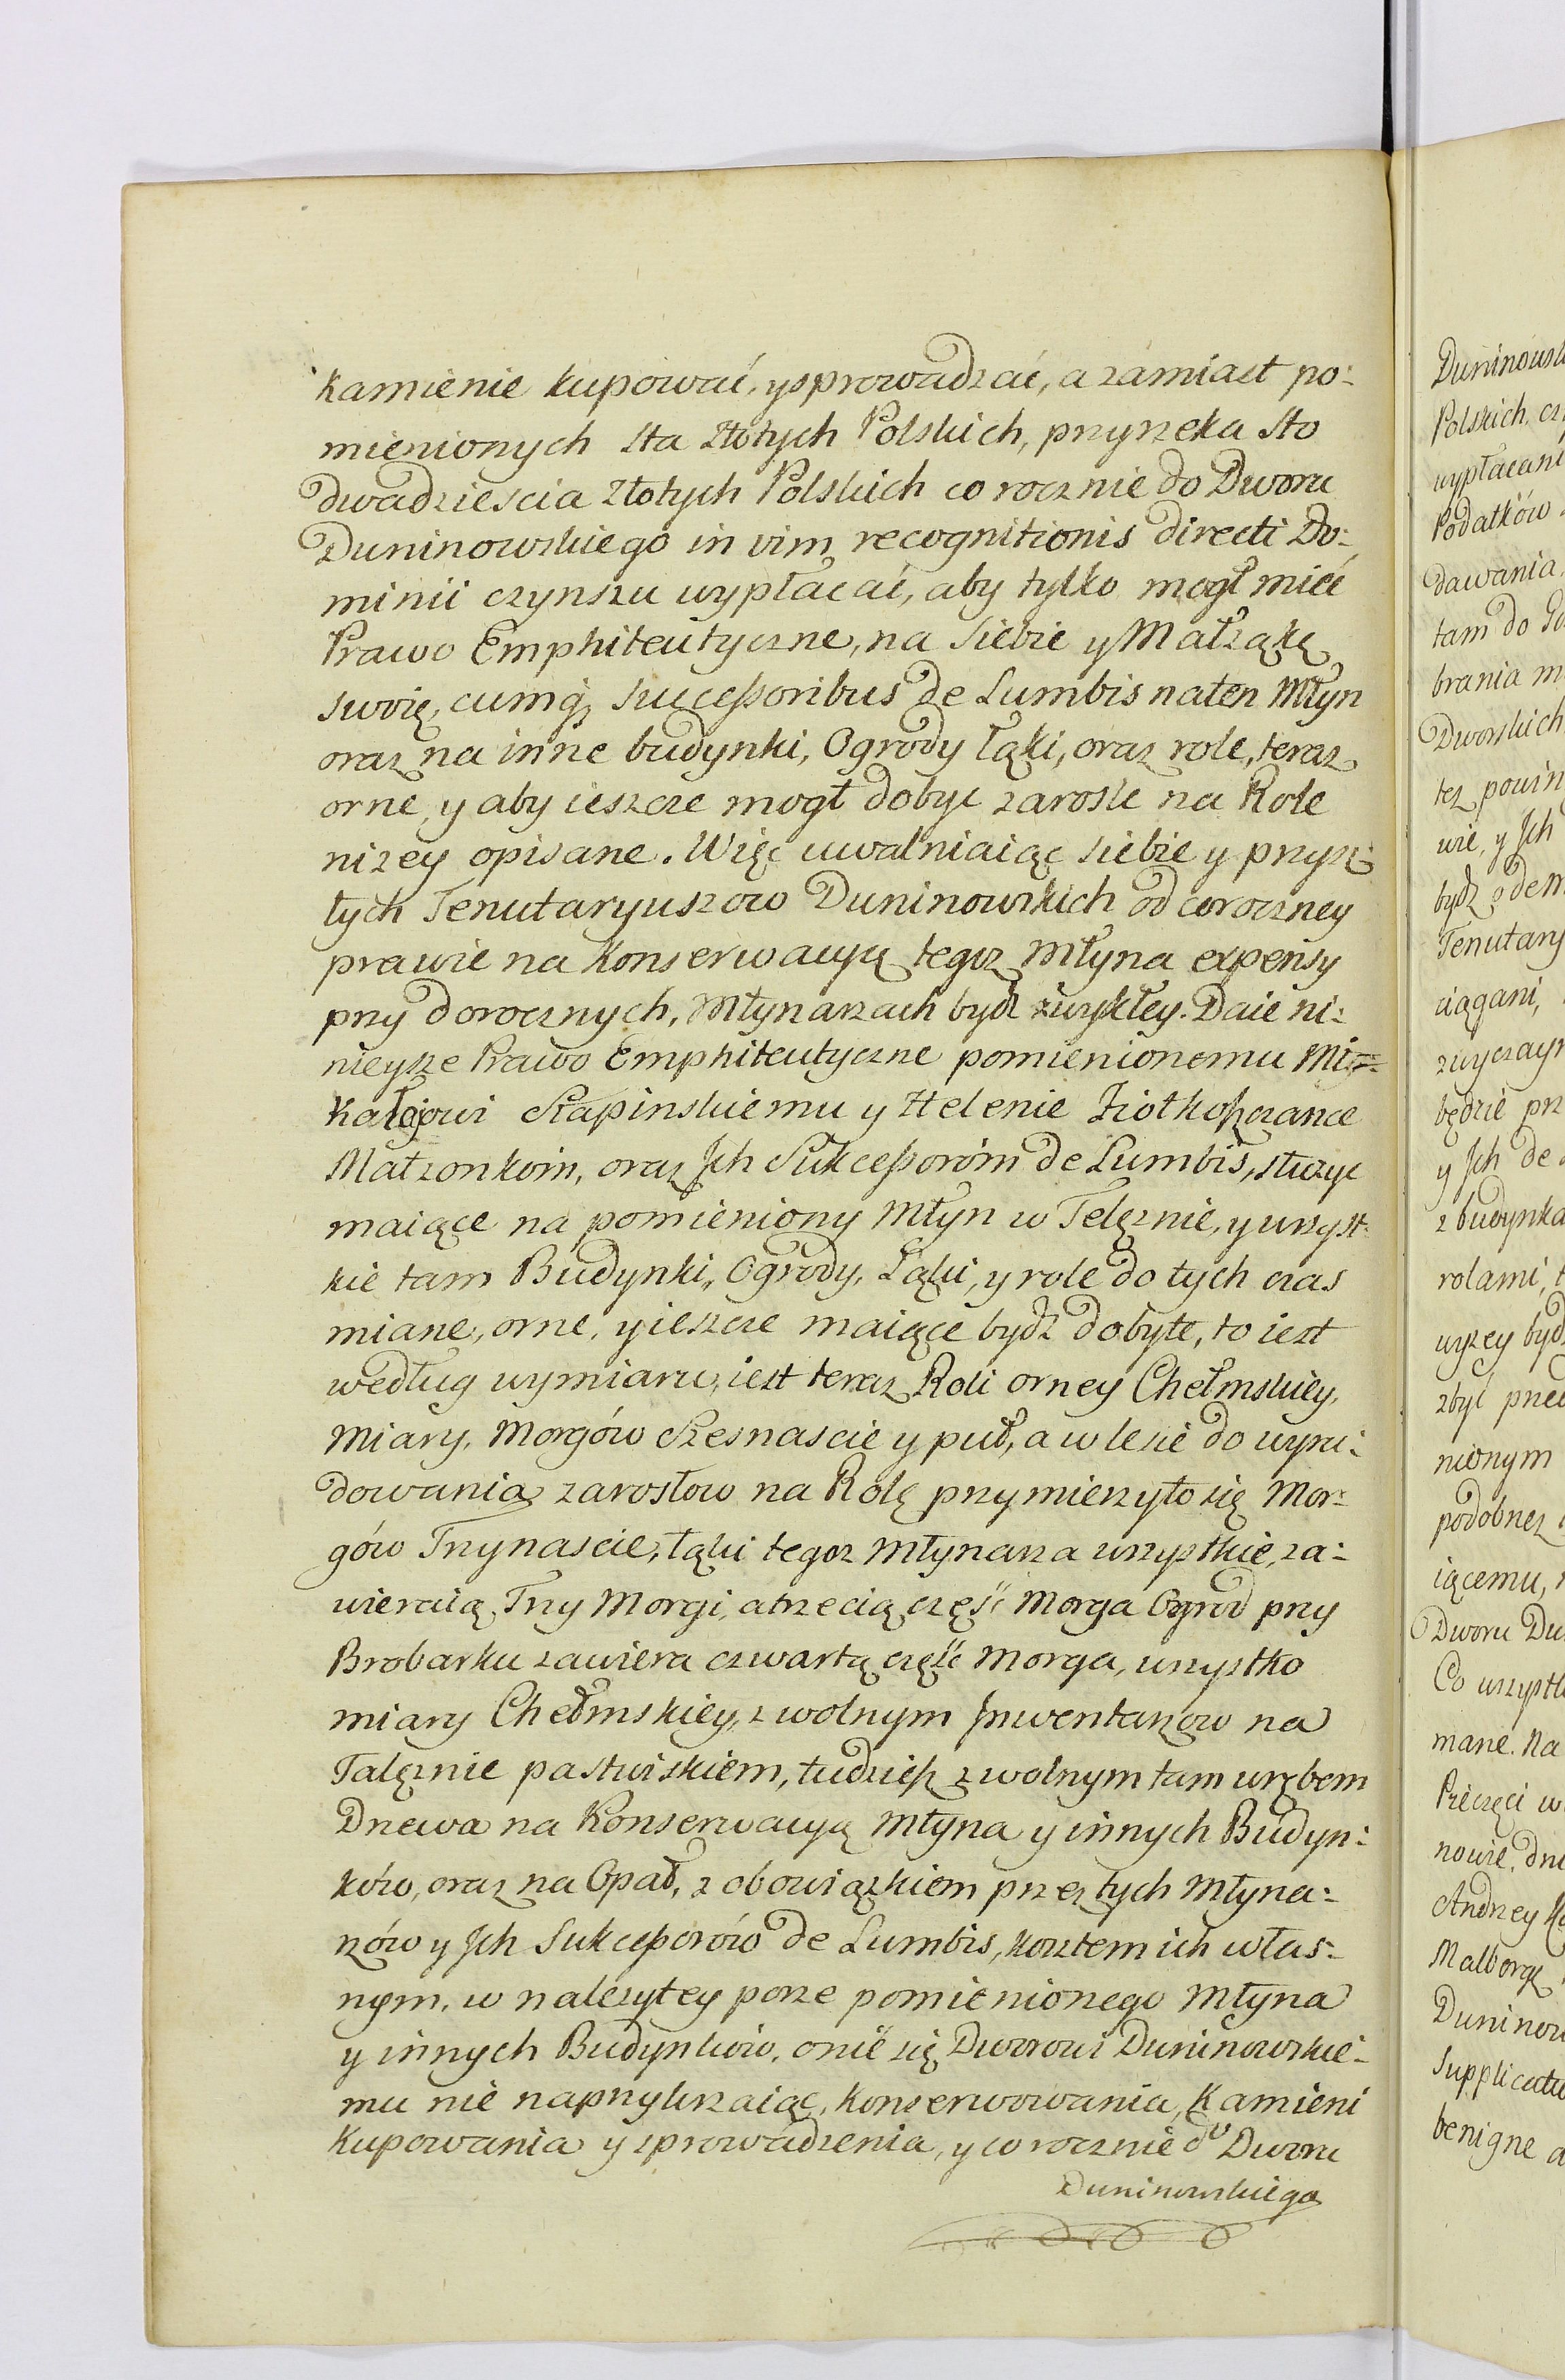 kamienie kupować, y sprowadzać, a zámiast po:
mienionych sta Złotych Polskich, przyrzeka sto
dwadziescia Złotych Polskich co rocznie do Dworu
Duninowskiego in vim recognitionis directi Do:
minii czynszu wypłacać, aby tylko mogł mieć
Prawo Emphiteutyczne, na siebie y Małżąkę
swoię, cumq; succeßoribus de Lumbis na ten Młyn
oraz na inne budynki, Ogrody Łąki, oraz role, teraz
orne, y aby ieszcze mogł dobyc zarosle na Role
nizey opisane. Więc uwalniaiąc siebie y przysz:
łych Tenutaryuszow Duninowskich od coroczney
prawie na Konserwacyą tegoz Młyna expensy
przy dorocznych, Młynarzach bydź zwykłey. Daie ni:
nieysze Prawo Emphiteutyczne pomienionemu Mi=
kołajowi Szapinskiemu y Helenie Ziołkoßczance
Małzonkom, oraz Jch Sukceßorom de Lumbis, słuzyc
maiące na pomieniony Młyn w Telęznie, y wszyst:
kie tam Budynki, Ogrody, Łąki, y role do tych czas
miane, orne, y ieszcze maiące bydź dobyte, to iest
według wymiaru, iest teraz Roli orney Chełmskiey,
Miary, Morgów Szesnascie y puł, a w lesie do wyru:
dowania zarosłow na Rolę przymierzyło się Mor:
gów Trzynascie, łąki tegoz Młynarza wszystkie, za:
wieraią, Trzy Morgi, a trzecią część Morga Ogrod przy
Brobarku zawiera czwartą część Morga, wszystko
miary Chełmskiey, z wolnym Jnwentarzow na
Talęznie pastwiskiem, tudzieß z wolnym tam wrębem
Drzewa na Konserwacyą Młyna y innych Budyn:
ków, oraz na Opał, z obowiązkiem przez tych Młyna:
rzów y Jch Sukceßorów de Lumbis, kosztem ich włas:
nym, w nalezytey porze pomienionego Młyna
y innych Budynkow, o nie się Dworowi Duninowskie:
mu nie naprzykrzaiąc, konserwowania, Kamieni
Kupowania y sprowádzenia, y co rocznie do Dworu
Duninowskiego
Polskich, cz
wypłacani
Podatków
dawania
tam do
brania m
Dworskich
tez powin
wie, y Jch
bydź odem
Tenutary
ciągani,
zwyczayn
będzie prz
y Jch de
z budynka
rolami, t
wyzey bydź
zbyć
nionym
podobnez
iącemu,
Dworu Du
Co wszystk
mane. Na
Pieczęci w
nowie, dni
Andrzey
Malborg
Duninow
Supplicatu
benigne a